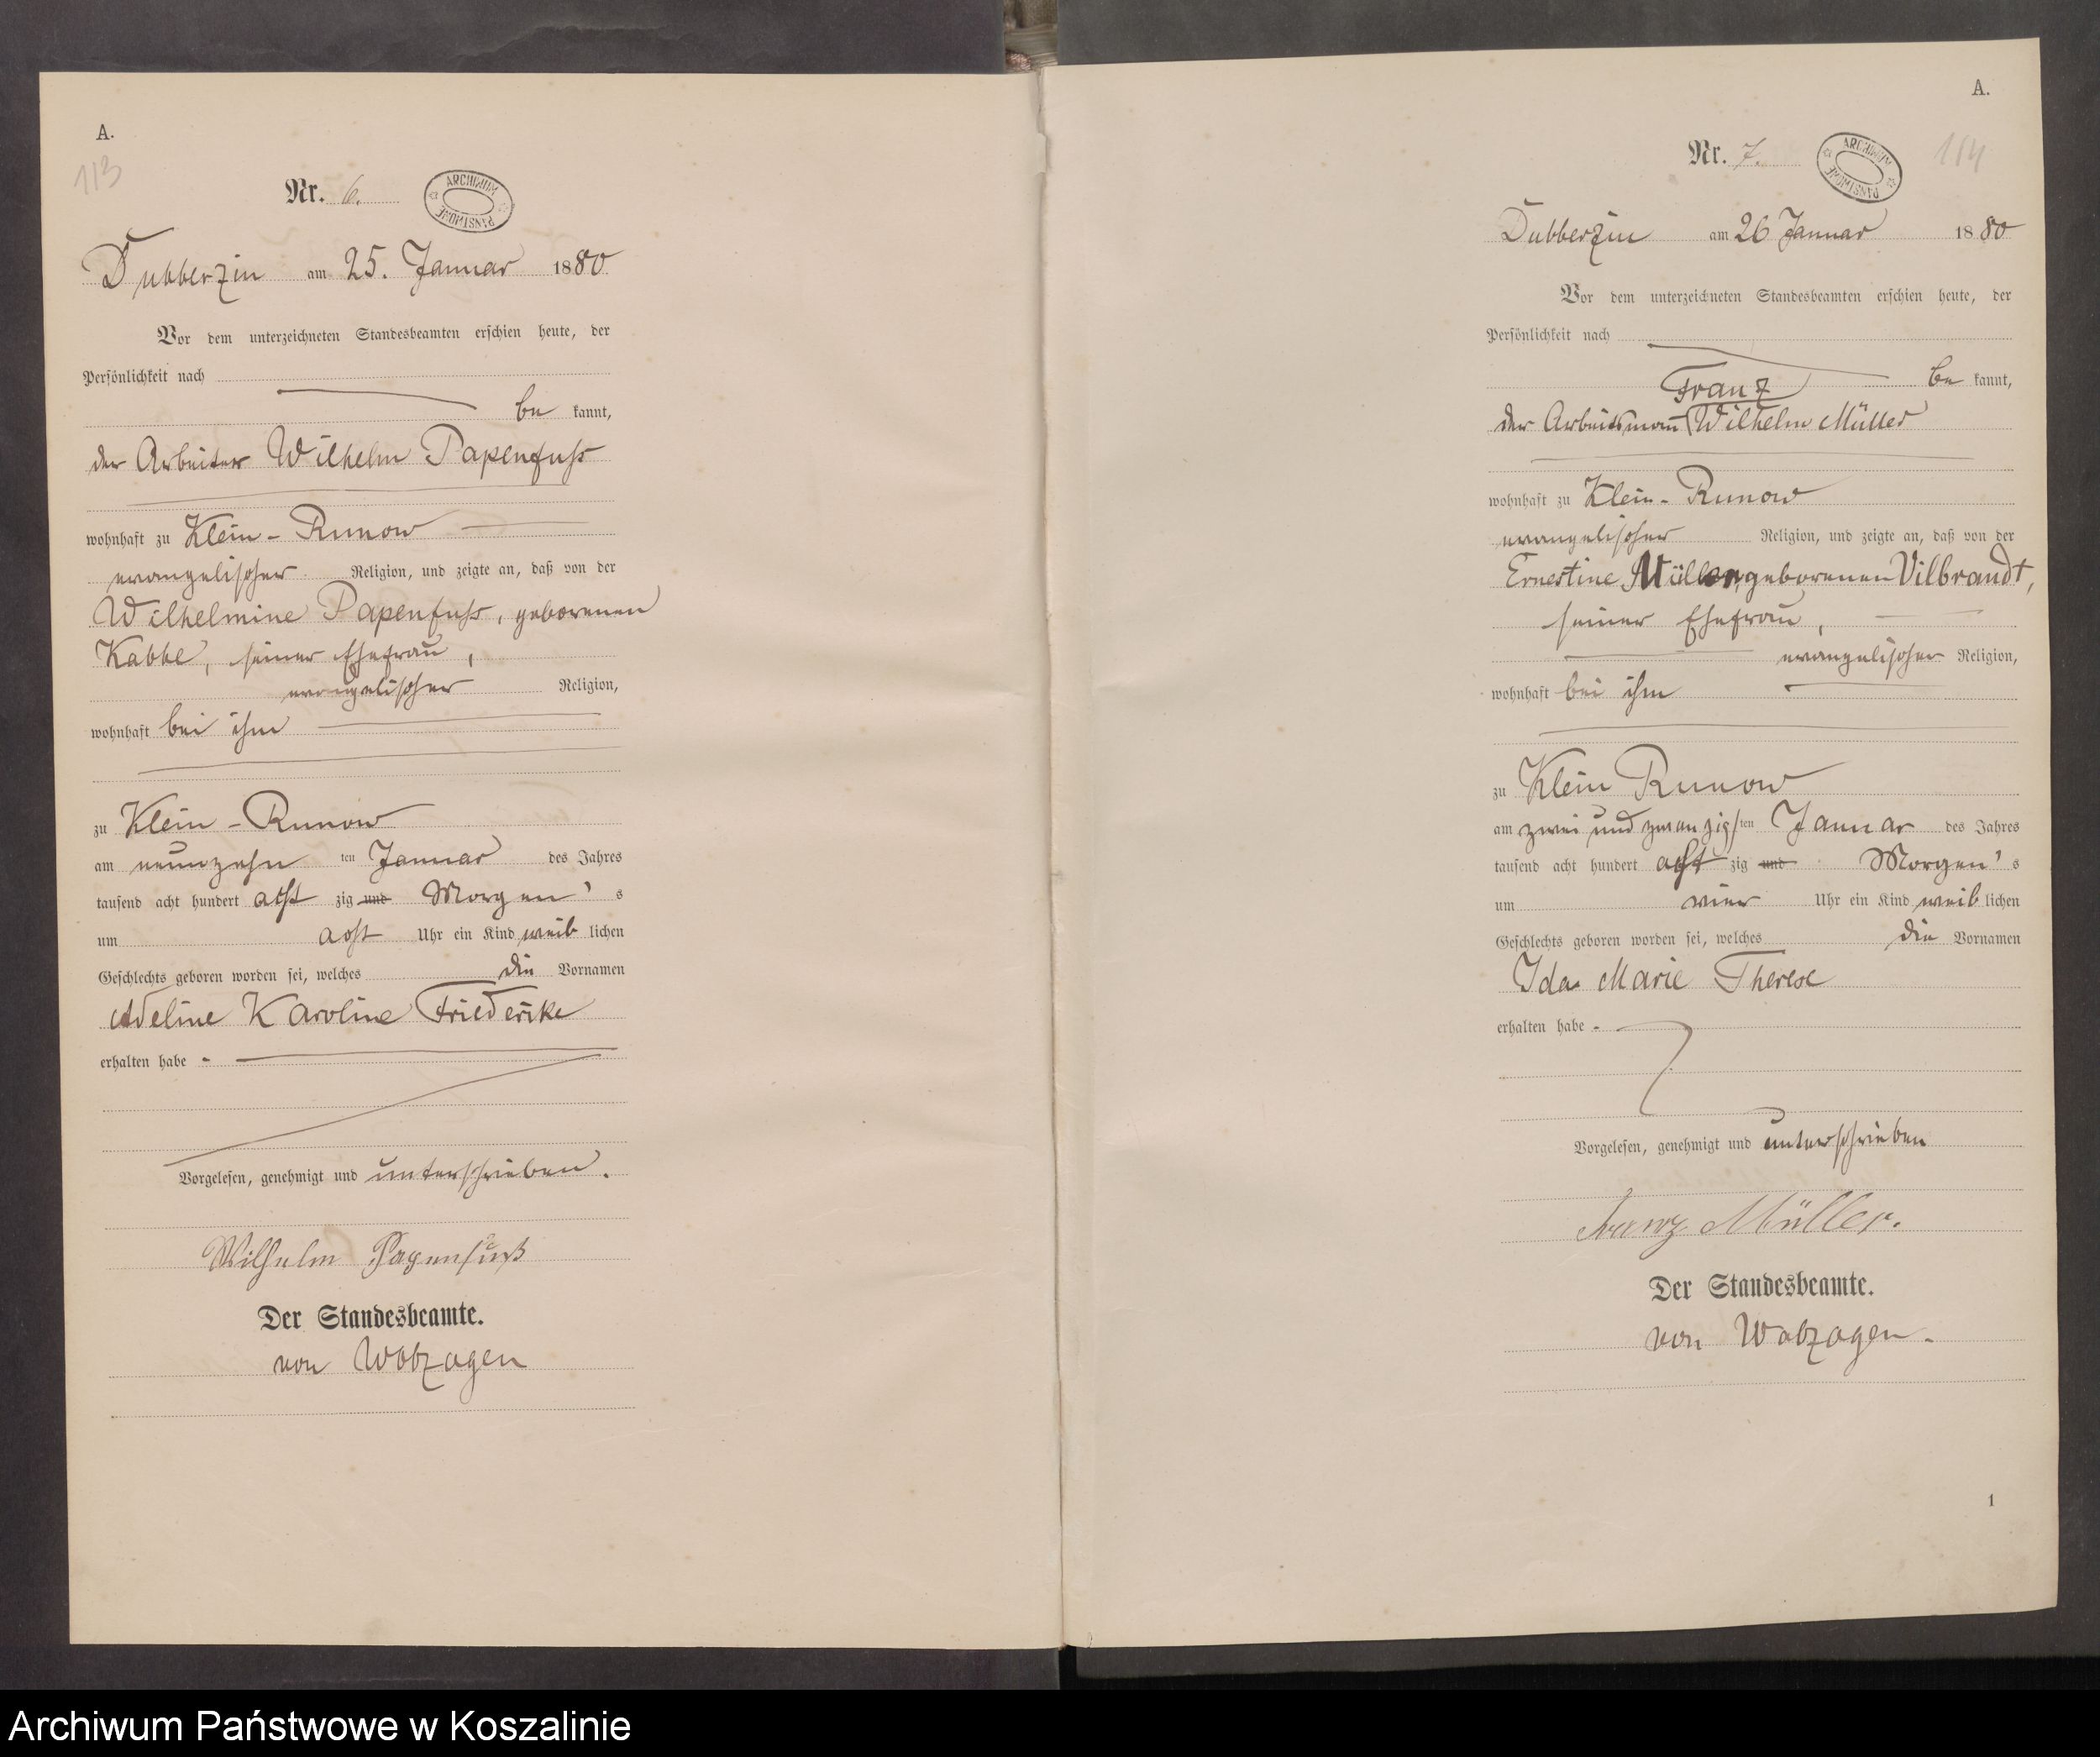 A.
113
Nr. 6.
ARCHIWUM PAŃSTWOWE
Dubberzin am 25. Januar 1880
Vor dem unterzeichneten Standesbeamten erschien heute, der
Persönlichkeit nach
be kannt,
der Arbeiter Wilhelm Papenfuss
wohnhaft zu Klein-Runow
evangelischer Religion, und zeigte an, daß von der
Wilhelmine Papenfuss, geborenen
Kabbe, seiner Ehefrau,
evangelischer Religion,
wohnhaft bei ihm
zu Klein-Runow
am neunzehn ten Januar des Jahres
tausend acht hundert acht zig und Morgen's
um acht Uhr ein Kind weib lichen
Geschlechts geboren worden sei, welches die Vornamen
Adeline Karoline Friederike
erhalten habe -
Vorgelesen, genehmigt und unterschrieben.
Wilhelm Papenfuß
Der Standesbeamte.
von
A.
Nr. 7.
ARCHIWUM PAŃSTWOWE
114
Dubberzin am 26 Januar 1880
Vor dem unterzeichneten Standesbeamten erschien heute, der
Persönlichkeit nach
be kannt,
Franz
der Arbeitsmann Wilhelm Müller
wohnhaft zu Klein-Runow
evangelischer Religion, und zeigte an, daß von der
Ernestine Müller, geborenen Vilbrandt,
seiner Ehefrau,
evangelischer Religion,
wohnhaft bei ihm
zu Klein Runow
am zwei und zwanzigsten Januar des Jahres
tausend acht hundert acht zig und Morgen's
um vier Uhr ein Kind weib lichen
Geschlechts geboren worden sei, welches die Vornamen
Ida Marie Therese
erhalten habe -
Vorgelesen, genehmigt und unterschrieben
Franz Müller.
Der Standesbeamte.
von
1
Archiwum Państwowe w Koszalinie